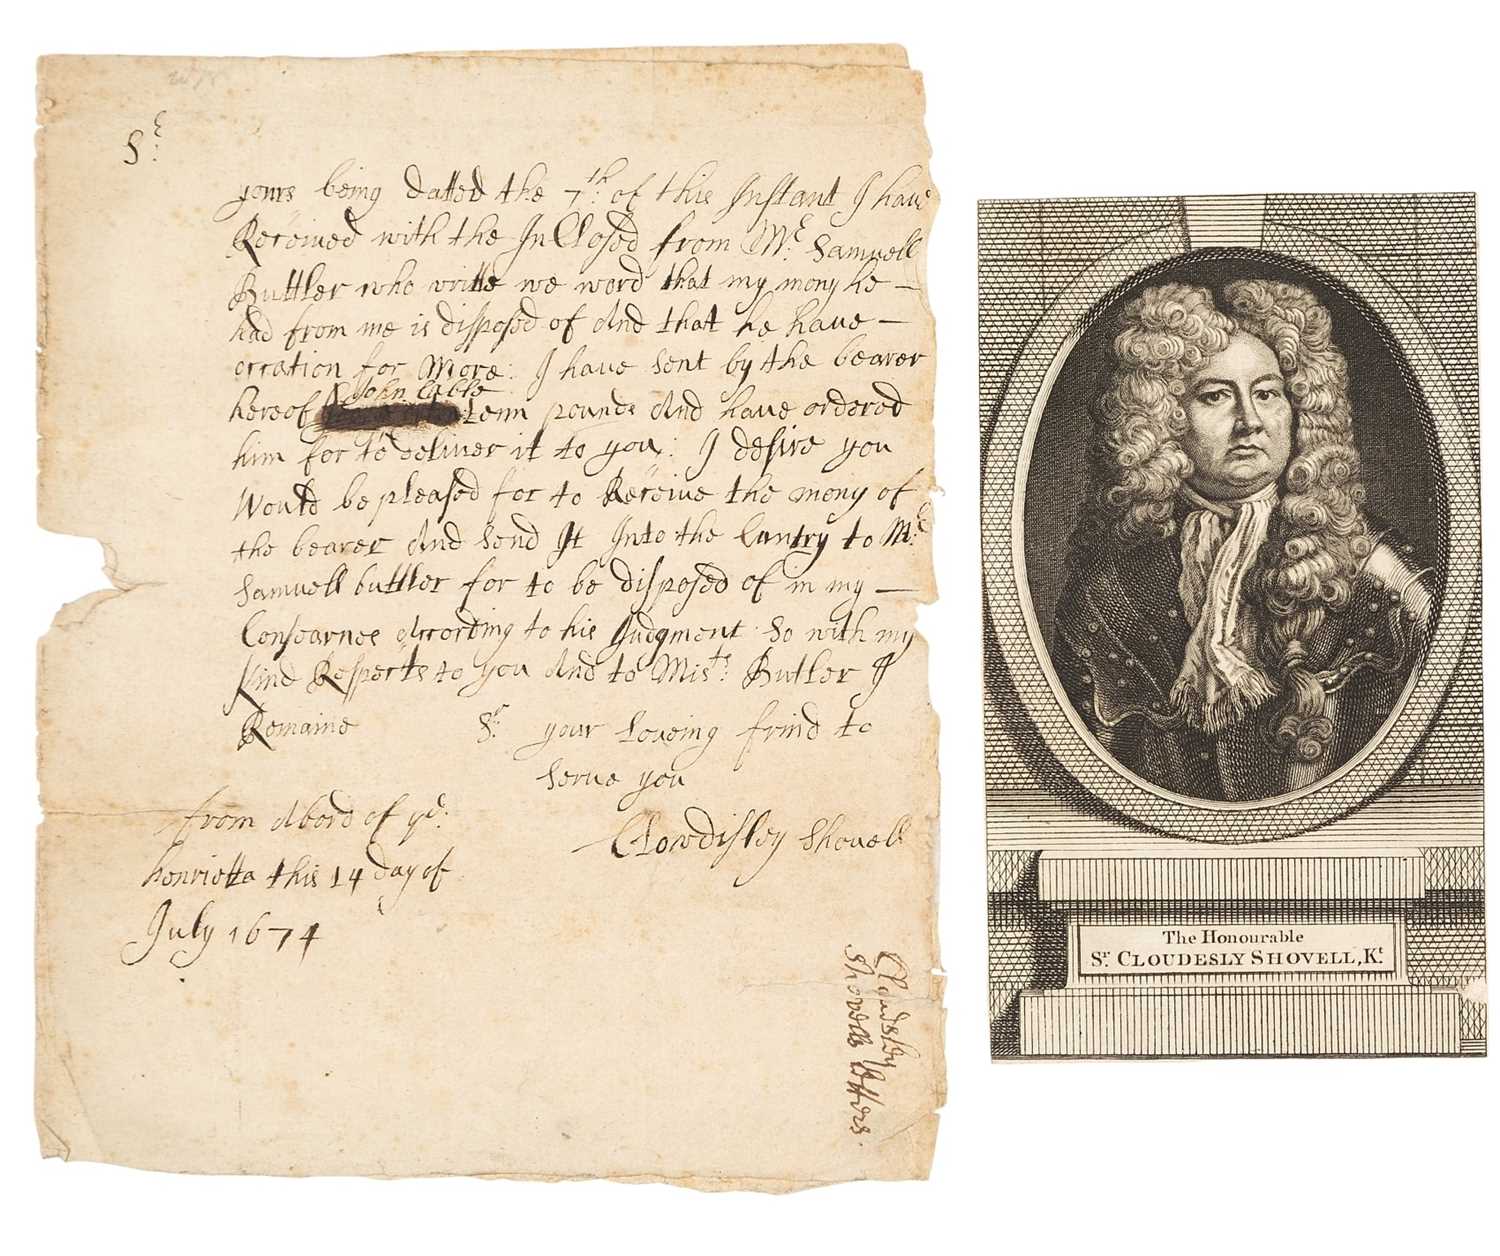 Sr:
yours being datted the 7th: of this Instant I have
Received with the InClosed from Mr: Samuell
Buttler who writte we word that my mony he —
had from me is disposed of And that he have —
occation for More: I have sent by the bearer
John Cable
hereof tenn pounds And have ordered
him for to deliver it to you: I desire you
Would be pleased for to Receive the mony of
the bearer And send It Into the Cuntry to Mr:
Samuell buttler for to be disposed of in my —
Consearnes According to his Judgment So with my
kind Respects to you And to Mists: Butler I
Remaine Sr: your loveing frind to
serve you
Clowdisley Shovell
from Abord of ye:
henrietta this 14 day of
July 1674
Cloudsley
Shovells letters.
The Honourable
Sr. CLOUDESLY SHOVELL, Kt.